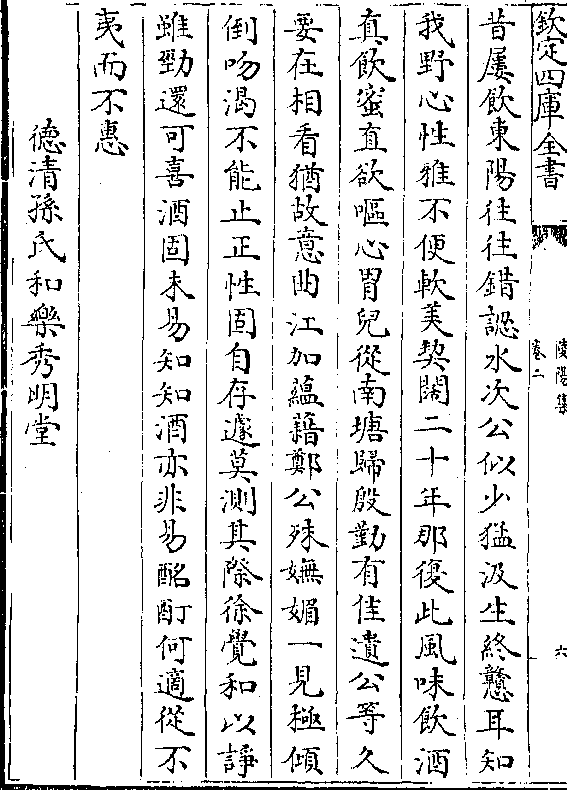 欽定四庫全書
陵陽集
卷二
六
昔屢飲東陽往往錯認水次公似少猛汲生終戇耳知
我野心性雅不便軟美契闊二十年那復此風味飲酒
真飲蜜直欲嘔心胃兒從南塘歸殷勤有佳遺公等久
要在相看猶故意曲江加蘊藉鄭公殊嫵媚一見極傾
倒吻渴不能止正性固自存遽莫測其際徐覺和以諍
雖勁還可喜酒固未易知知酒亦非易酩酊何適從不
夷而不惠
德清孫氏和樂秀明堂